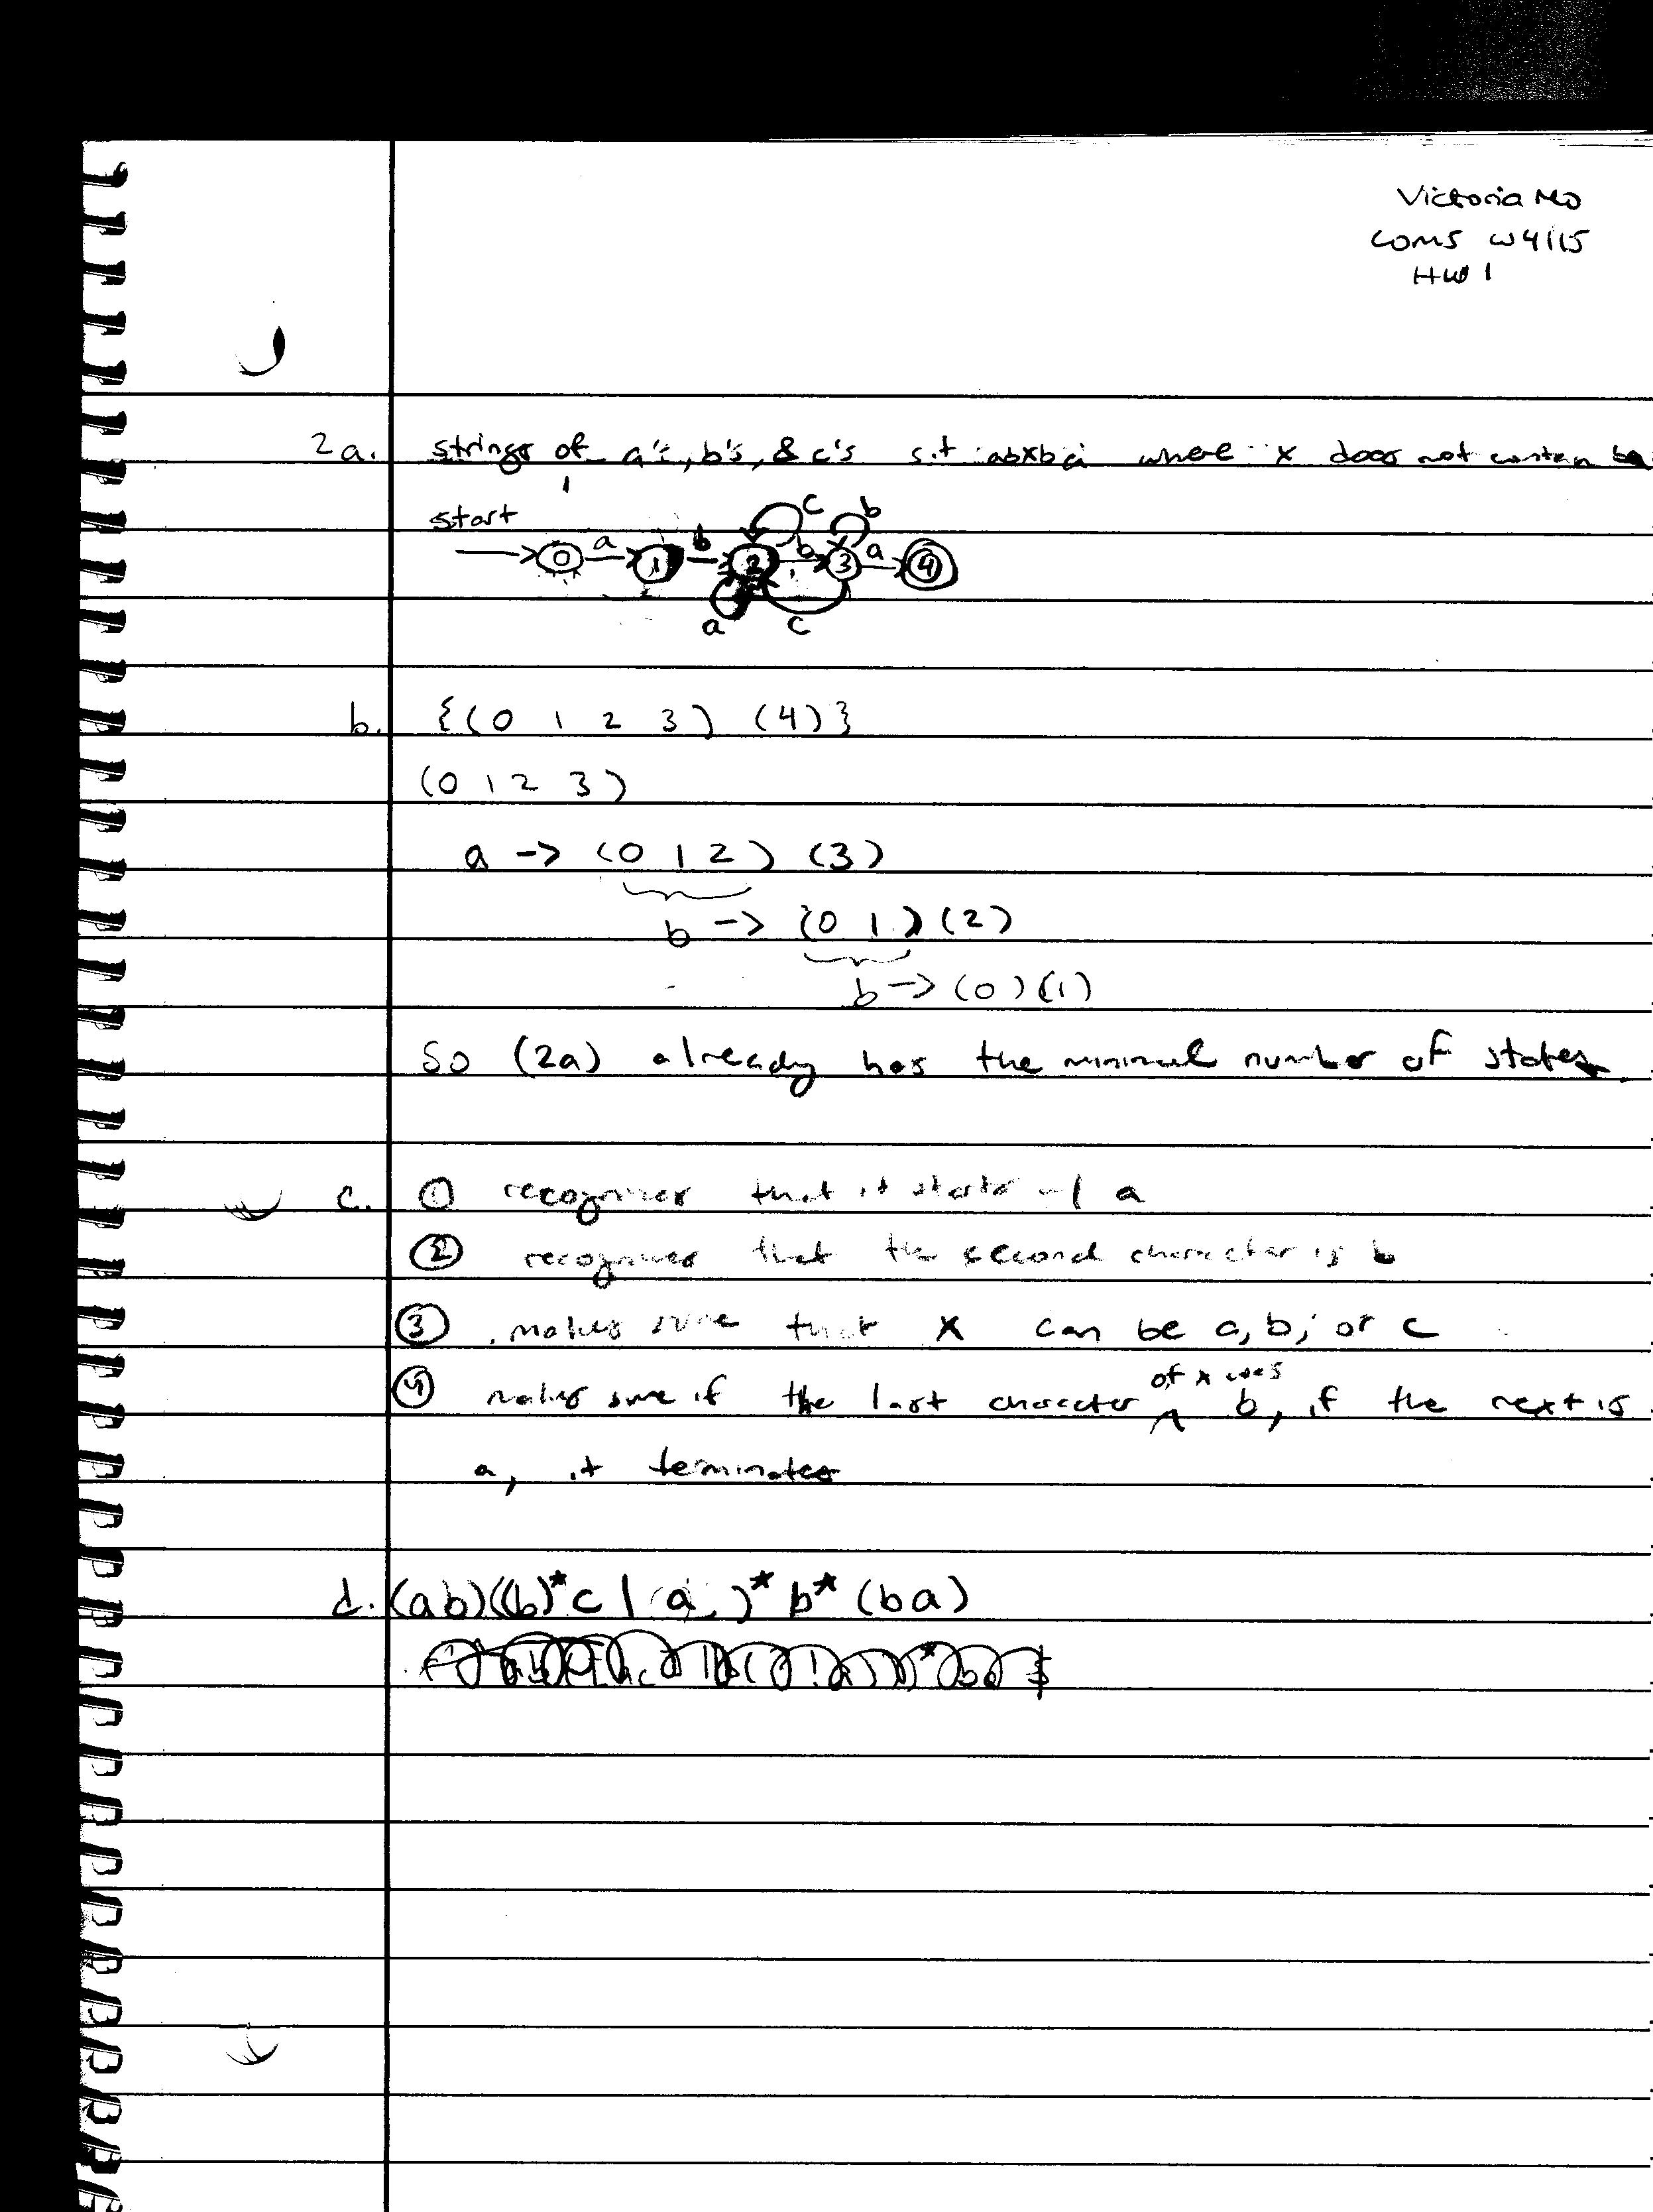 Victoria Mo
COMS W4115
HW 1
2a. strings of a's, b's, & c's s.t abxba where x does not contain ba
start
0 a 1 b 2 b 3 a 4
c b
a c
b. {(0 1 2 3) (4)}
(0 1 2 3)
a -> (0 1 2) (3)
b -> (0 1) (2)
b -> (0) (1)
So (2a) already has the minimal number of states
c. ① recognizes that it starts w/ a
② recognizes that the second character is b
③ makes sure that x can be a, b, or c
④ makes sure if the last character of x was b, if the next is
a, it terminates
d. (ab)((b)*c | a )* b* (ba)